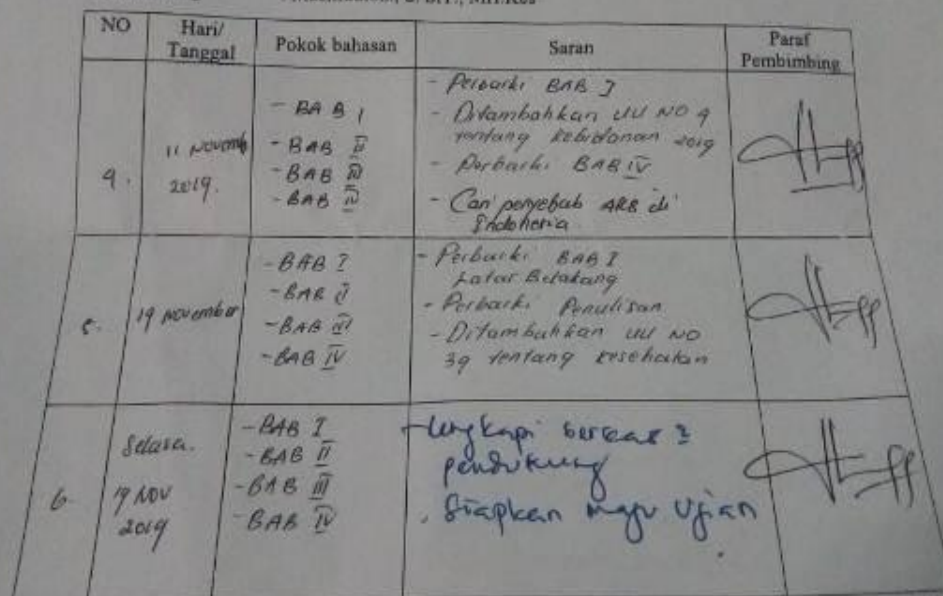 NO Hari/ Tanggal Pokok bahasan Saran Paraf Pembimbing
4. 11 Novemb 2019.
- BAB I
- BAB II
- BAB III
- BAB IV
- Perbaiki BAB I
- Ditambahkan UU NO 4
tentang kebidanan 2019
- Perbaiki BAB IV
- Cari penyebab AKB di
Indonesia.
5. 19 November
- BAB I
- BAB II
- BAB III
- BAB IV
- Perbaiki BAB I
Latar Belakang
- Perbaiki Penulisan
- Ditambahkan UU NO
39 tentang kesehatan
6. Selasa.
19 NOV
2019
- BAB I
- BAB II
- BAB III
- BAB IV
- Lengkapi berkas 2
pendukung
. Siapkan maju Ujian